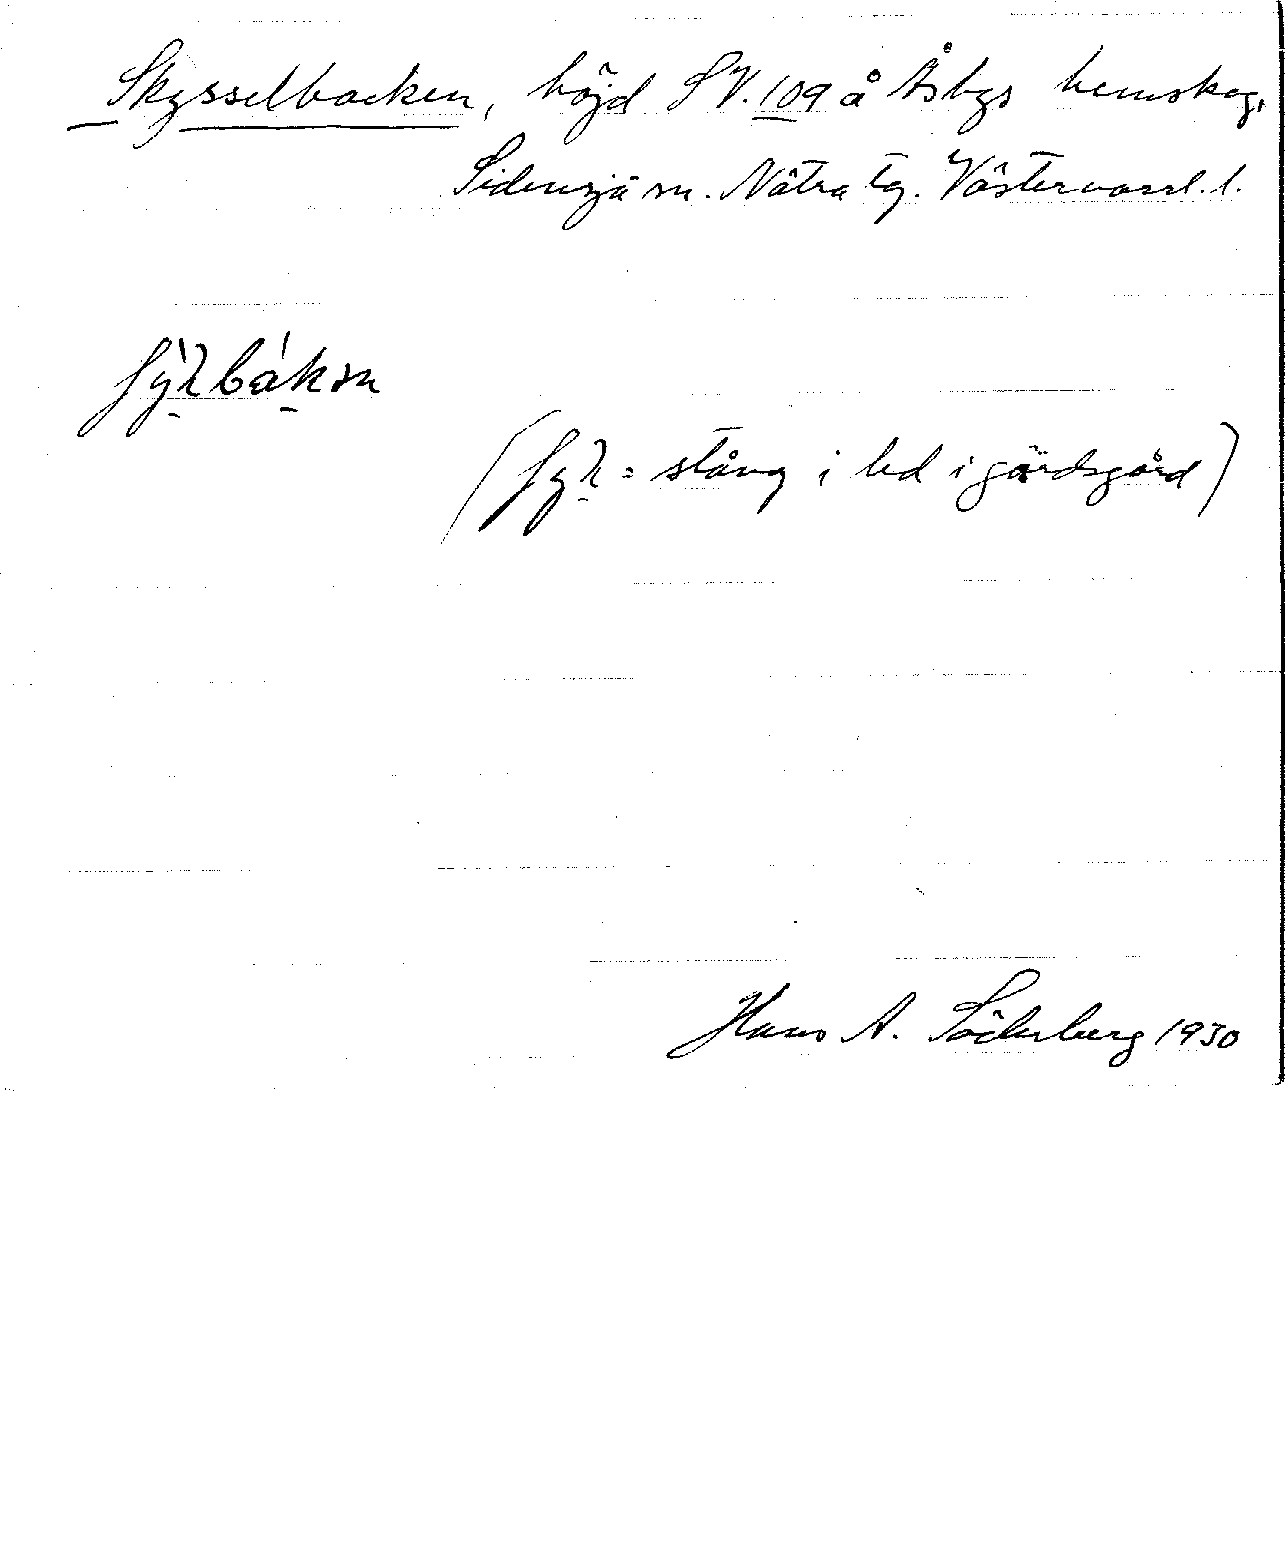 Skysselbacken, höjd SV. 109 å Åsbys hemskog,
Sidensjö sn. Nätra tg. Västernorrl. l.
(= stång i led i gärdsgård)
Hans A. Söderberg 1930